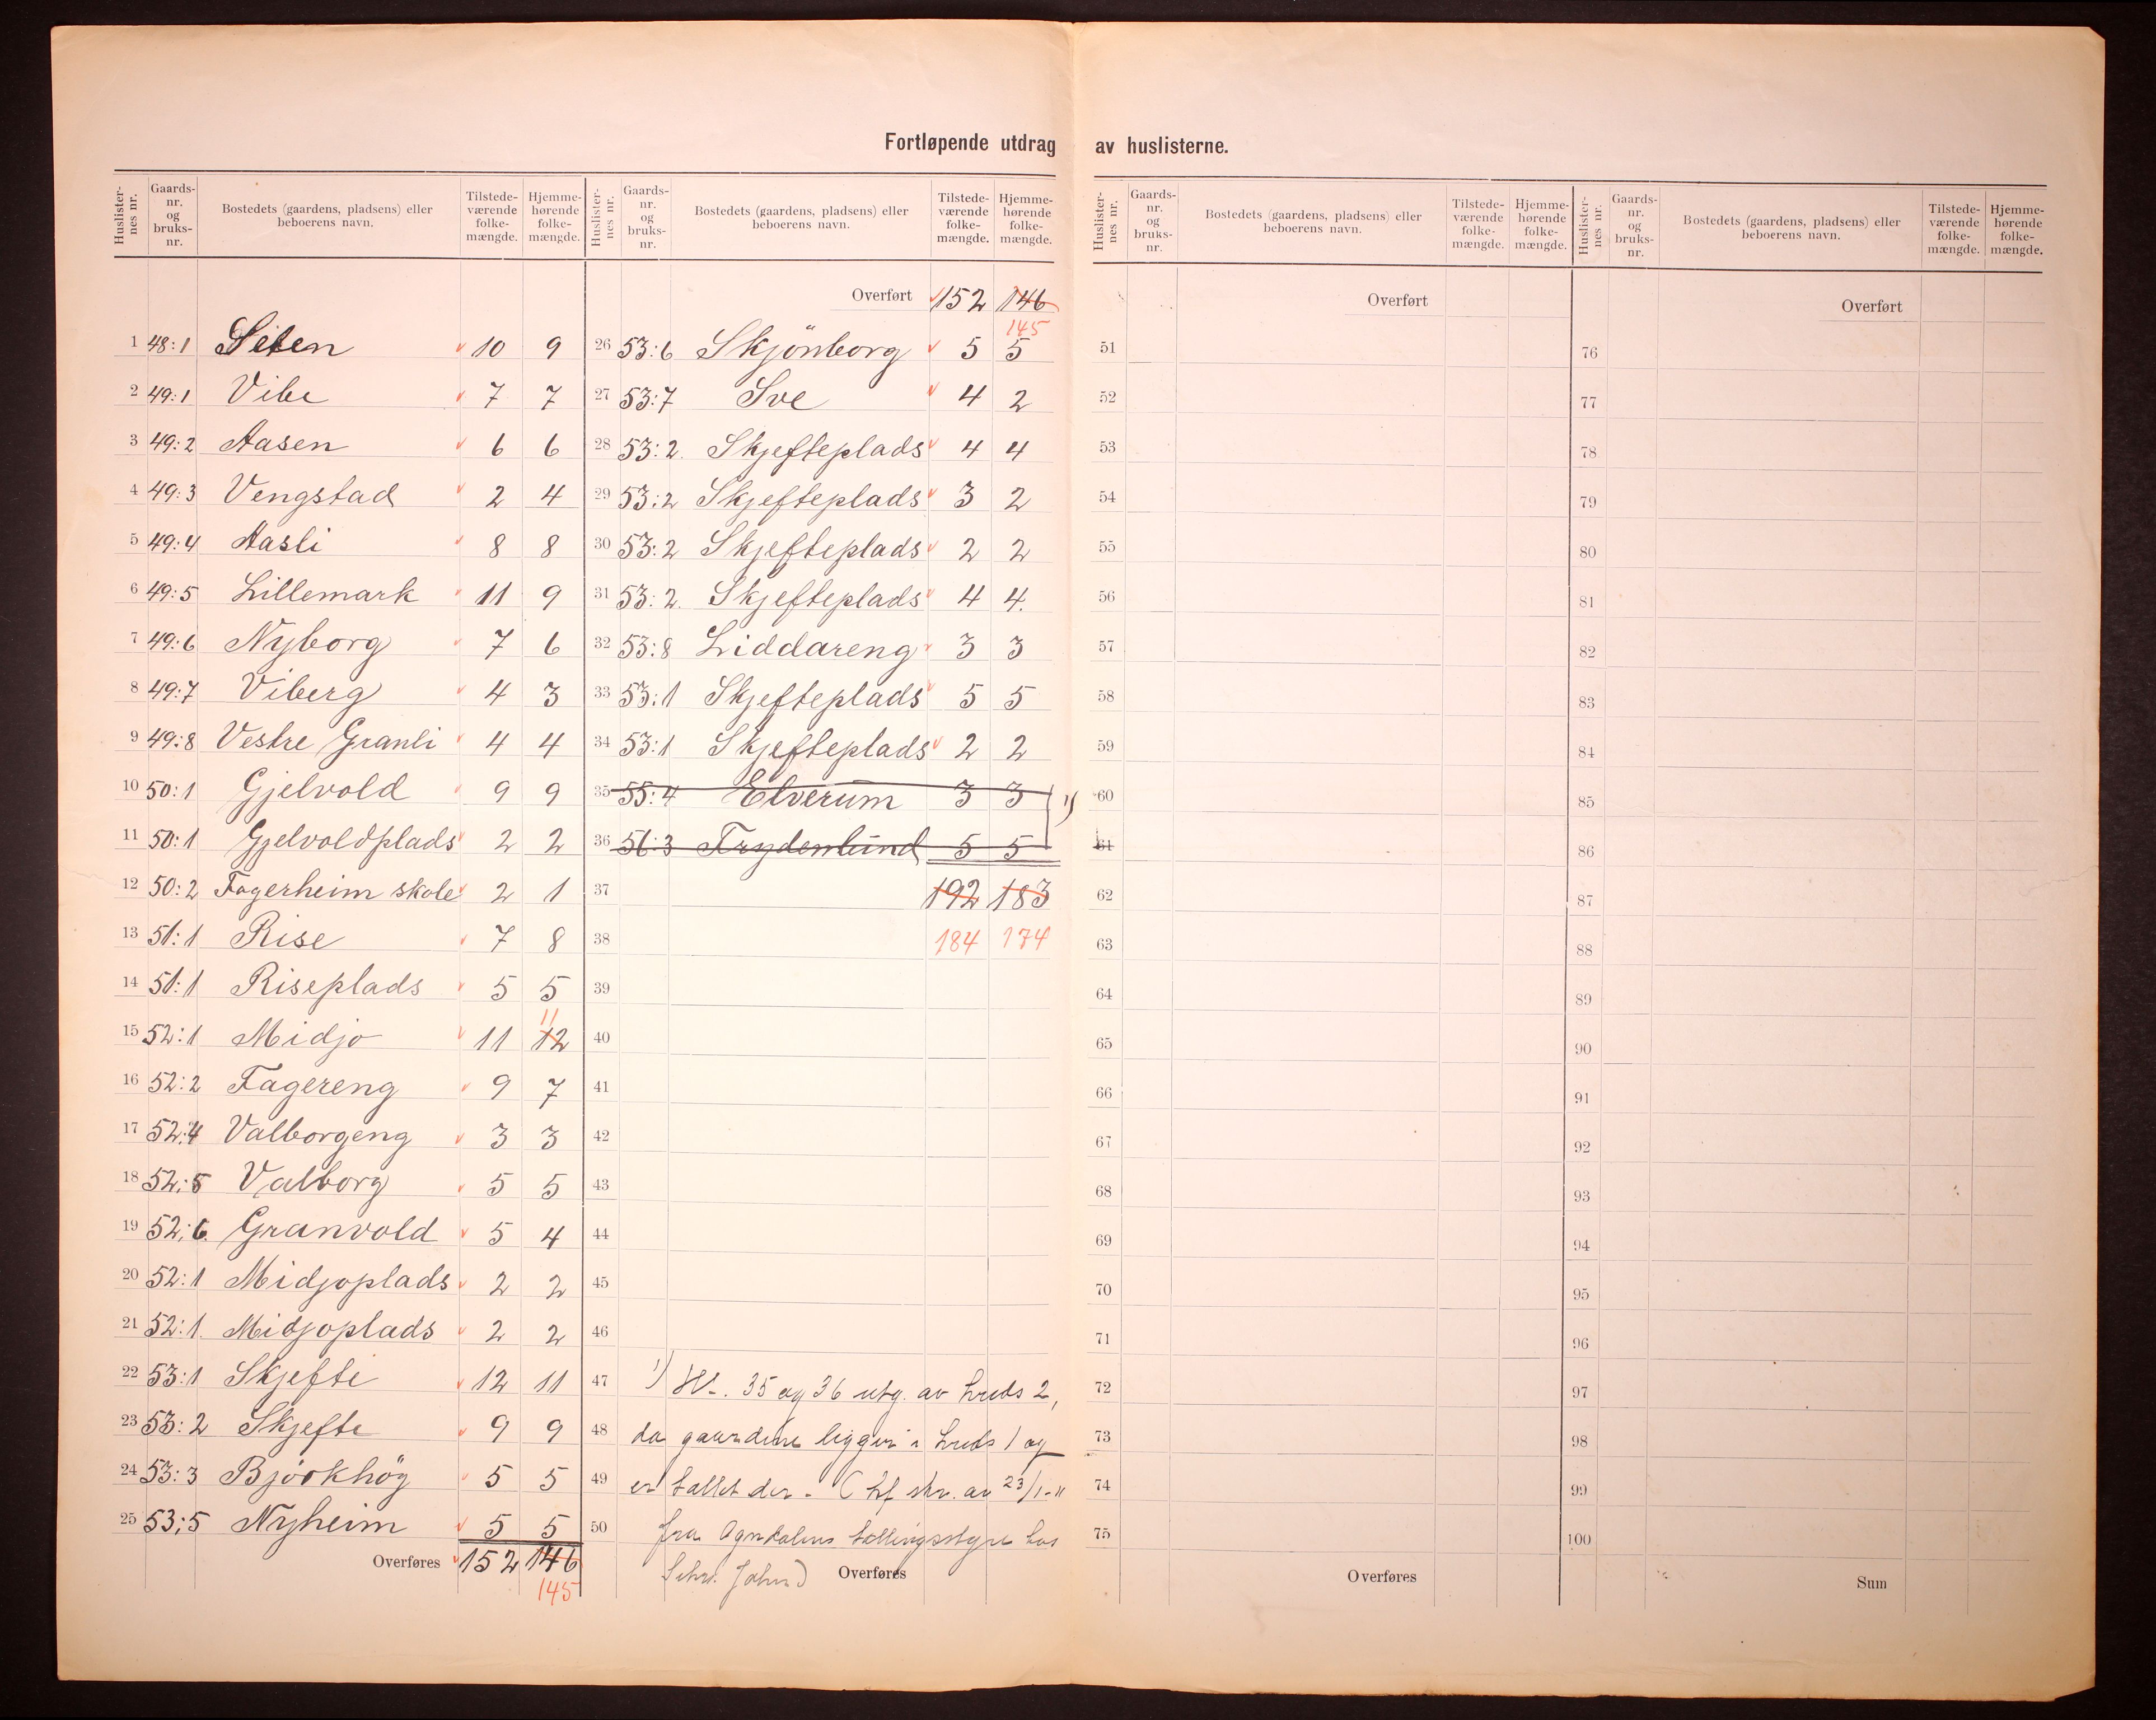 Fortløpende utdrag av huslisterne.
Huslister-nes nr. Gaards-nr. og bruks-nr. Bostedets (gaardens, pladsens) eller beboerens navn. Tilstede-værende folke-mængde. Hjemme-hørende folke-mængde.
1 48:1 Seten 10 9
2 49:1 Vibe 7 7
3 49:2 Aasen 6 6
4 49:3 Vengstad 2 4
5 49:4 Aasli 8 8
6 49:5 Lillemark 11 9
7 49:6 Nyborg 7 6
8 49:7 Viberg 4 3
9 49:8 Vestre Granli 4 4
10 50:1 Gjelvold 9 9
11 50:1 Gjelvoldplads 2 2
12 50:2 Fagerheim skole 2 1
13 51:1 Rise 7 8
14 51:1 Riseplads 5 5
15 52:1 Midjo 11 12 11
16 52:2 Fagereng 9 7
17 52:4 Valborgeng 3 3
18 52:5 Valborg 5 5
19 52:6 Granvold 5 4
20 52:1 Midjoplads 2 2
21 52:1. Midjoplads 2 2
22 53:1 Skjefte 12 11
23 53:2 Skjefte 9 9
24 53:3 Bjørkhög 5 5
25 53:5 Nyheim 5 5
Overføres 152 146
145
Huslister-nes nr. Gaards-nr. og bruks-nr. Bostedets (gaardens, pladsens) eller beboerens navn. Tilstede-værende folke-mængde. Hjemme-hørende folke-mængde.
Overført 152 146
145
26 53:6 Skjönborg 5 5
27 53:7 Sve 4 2
28 53:2. Skjefteplads 4 4
29 53:2 Skjefteplads 3 2
30 53:2 Skjefteplads 2 2
31 53:2. Skjefteplads 4 4.
32 53:8 Liddareng 3 3
33 53:1 Skjefteplads 5 5
34 53:1 Skjefteplads 2 2
35 55:4 Elverum 3 3 1)
36 56:3 Frydenlund 5 5
37 192 183
38 184 174
39
40
41
42
43
44
45
46
47 1) Hl. 35 og 36 utg. av kreds 2,
48 da gaardene ligger i kreds 1 og
49 er tallet der. (kf skr. av 23/1-11
50 fra Agndalens tællingsstyre hos
Overføres
Huslister-nes nr. Gaards-nr. og bruks-nr. Bostedets (gaardens, pladsens) eller beboerens navn. Tilstede-værende folke-mængde. Hjemme-hørende folke-mængde.
Overført
51
52
53
54
55
56
57
58
59
60
61
62
63
64
65
66
67
68
69
70
71
72
73
74
75
Overføres
Huslister-nes nr. Gaards-nr. og bruks-nr. Bostedets (gaardens, pladsens) eller beboerens navn. Tilstede-værende folke-mængde. Hjemme-hørende folke-mængde.
Overført
76
77
78
79
80
81
82
83
84
85
86
87
88
89
90
91
92
93
94
95
96
97
98
99
100
Sum